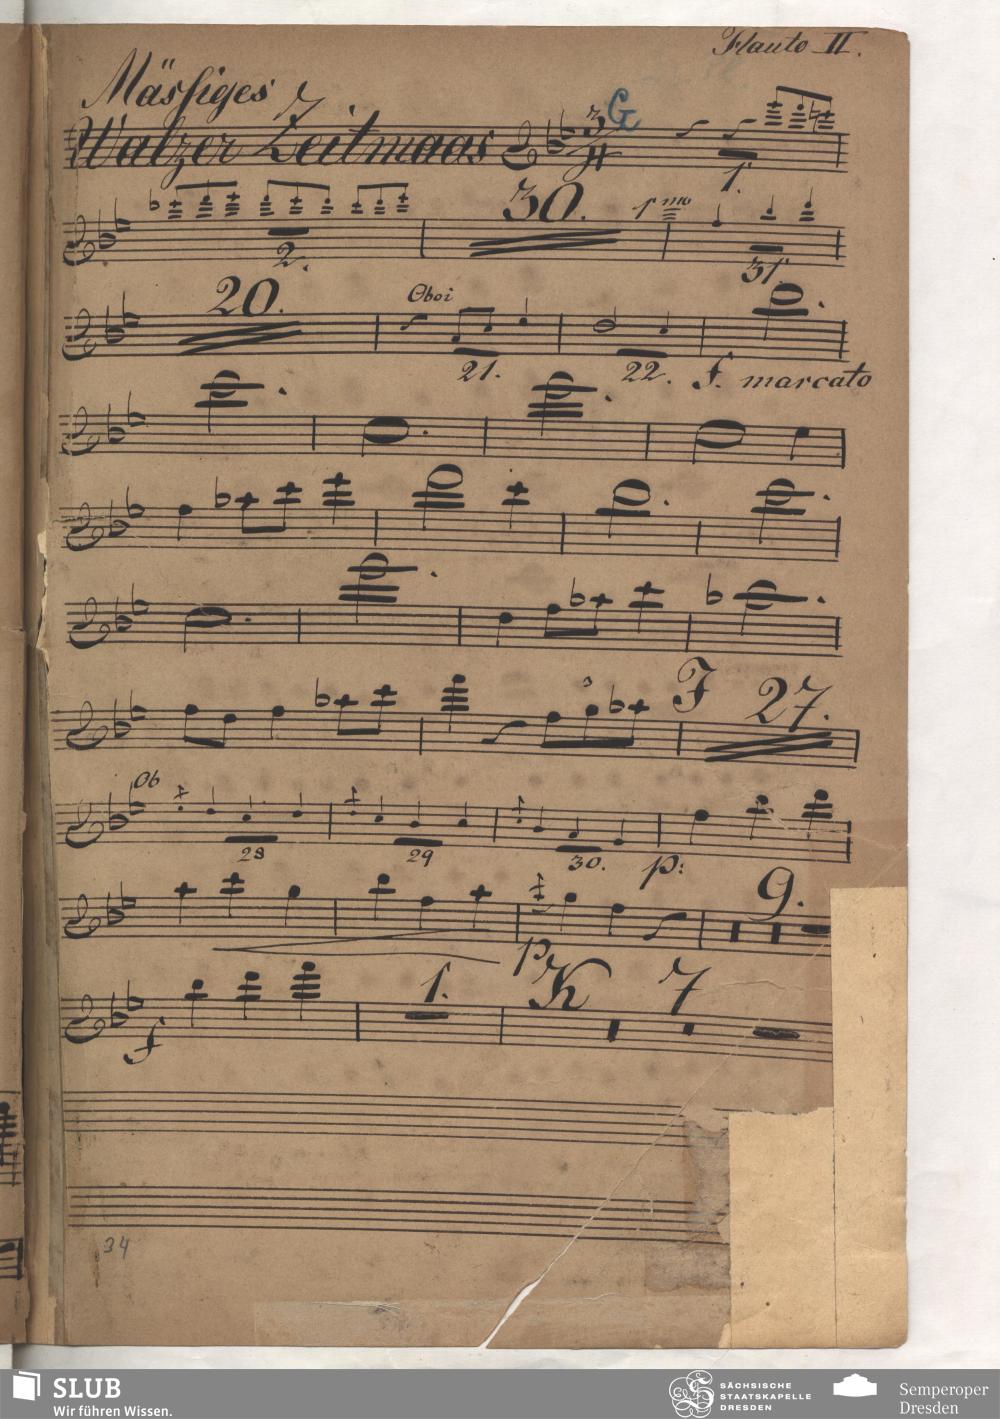 Flauto II.
Mässiges
Walzer Zeitmaas 3 4 G
1.
2. 30. 1mo 31
20. Oboi 21. 22. f. marcato
3 J 27.
Ob 28 29 30. p:
p 9.
f 1. K 7
34
SLUB
Wir führen Wissen.
SÄCHSISCHE
STAATSKAPELLE
DRESDEN
Semperoper
Dresden